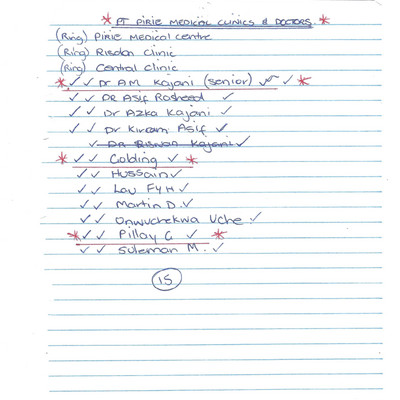 * PT PIRIE MEDICAL CLINICS & DOCTORS. *
(Ring) PIRIE Medical centre
(Ring) Risdon Clinic
(Ring) Central Clinic
* ✓ ✓ Dr AM Kajani (senior) ✓ ✓ ✓ *
✓ ✓ DR Asif Rasheed ✓
✓ ✓ Dr Azka Kajani ✓
✓ ✓ Dr Kiram Asif ✓
✓ DR Kajani ✓
* ✓ ✓ Colding ✓ *
✓ ✓ Hussain ✓
✓ ✓ Lau FYH ✓
✓ ✓ Martin D. ✓
✓ ✓ Onwuchekwa Uche ✓
* ✓ ✓ Pillay C ✓ *
✓ ✓ Suleman M. ✓ ✓
15